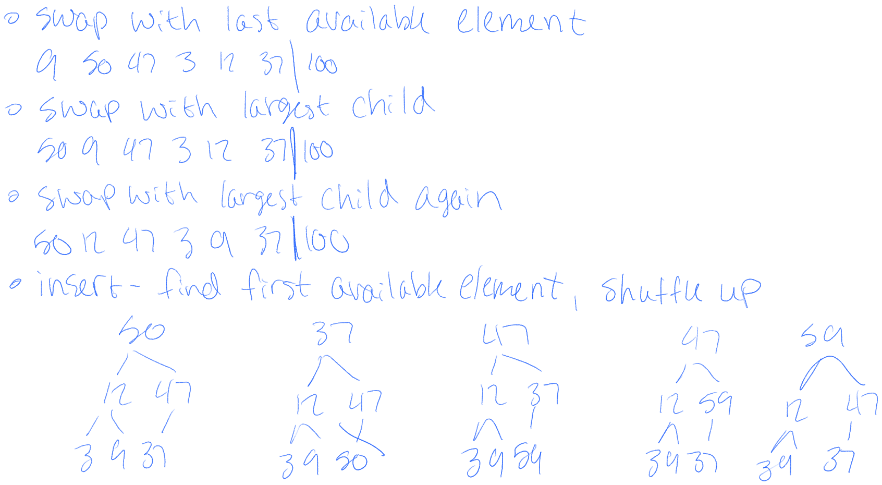 ○ swap with last available element
9 50 47 3 12 37 | 100
○ swap with largest child
50 9 47 3 12 37 | 100
○ swap with largest child again
50 12 47 3 9 37 | 100
○ insert - find first available element, shuffle up
50 37 47 47 59
12 47 12 47 12 37 12 59 12 47
3 9 37 3 9 50 3 9 59 3 9 37 3 9 37